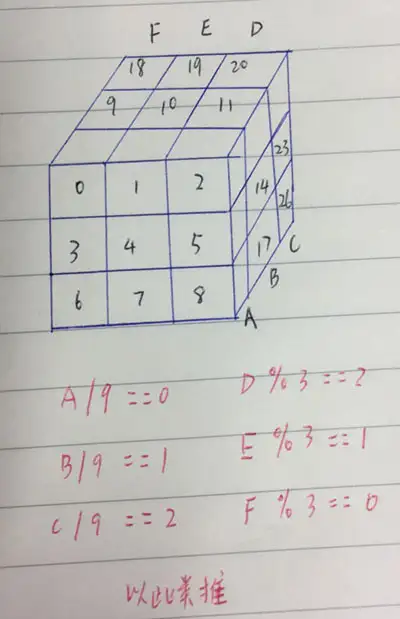 F E D
18 19 20
9 10 11
0 1 2
3 4 5
6 7 8
23
14
26
17
C
B
A
A/9 ==0 D % 3 ==2
B/9 ==1 E % 3 ==1
C/9 ==2 F % 3 == 0
以此类推